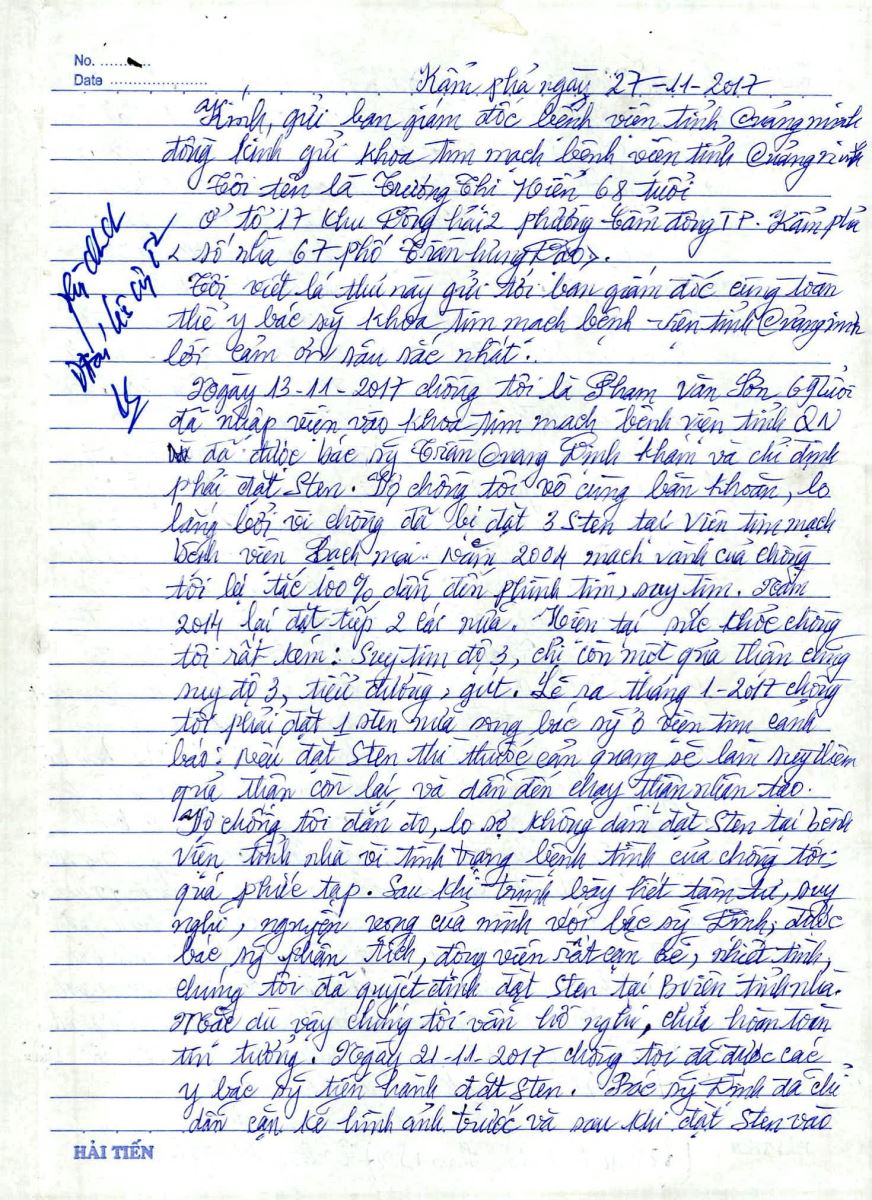 No. ...........
Date .....................
Kẩm phả ngày 27-11-2017
Kính, gửi ban giám đốc bệnh viện tỉnh Quảng ninh
đồng kính gửi khoa tim mạch bệnh viện tỉnh Quảng ninh
Tôi tên là Trương Thị Hiển 68 tuổi
Ở tổ 17 khu Đông hải 2 phường Cẩm đông TP. Kẩm phả
< số nhà 67 phố Trần hưng Đạo>.
Tôi viết lá thư này gửi tới ban giám đốc cùng toàn
thể y bác sỹ khoa tim mạch bệnh viện tỉnh Quảng ninh
lời cảm ơn sâu sắc nhất.
Ngày 13-11-2017 chồng tôi là Phạm văn Sơn 69 tuổi
đã nhập viện vào khoa tim mạch bệnh viện tỉnh QN
đã được bác sỹ Trần Quang Định khám và chỉ định
phải đặt Sten. Vợ chồng tôi vô cùng băn khoăn, lo
lắng bởi vì chồng đã bị đặt 3 Sten tại Viện tim mạch
bệnh viện Bạch mai. năm 2004 mạch vành của chồng
tôi lại tắc 100% dẫn đến phình tim, suy tim. Năm
2014 lại đặt tiếp 2 cái nữa. Hiện tại sức khỏe chồng
tôi rất kém: Suy tim độ 3, chỉ còn một quả thận cũng
suy độ 3, tiểu đường, gút. Lẽ ra tháng 1-2017 chồng
tôi phải đặt 1 sten nữa song bác sỹ ở viện tim cảnh
báo: nếu đặt Sten thì thuốc cản quang sẽ làm suy thêm
quả thận còn lại, và dẫn đến chạy thận nhân tạo.
Vợ chồng tôi đắn đo, lo sợ không dám đặt Sten tại bệnh
viện tỉnh nhà vì tình trạng bệnh tình của chồng tôi
quá phức tạp. Sau khi trình bày hết tâm tư, suy
nghĩ, nguyện vọng của mình với bác sỹ Định, được
bác sỹ phân tích, động viên rất cặn kẽ, nhiệt tình,
chúng tôi đã quyết định đặt Sten tại Bviện tỉnh nhà.
Mặc dù vậy chúng tôi vẫn hồ nghi, chưa hoàn toàn
tin tưởng. Ngày 21-11-2017 chồng tôi đã được các
y bác sỹ tiến hành đặt Sten. Bác sỹ Định đã chỉ
dẫn cặn kẽ hình ảnh trước và sau khi đặt Sten vào
HẢI TIẾN